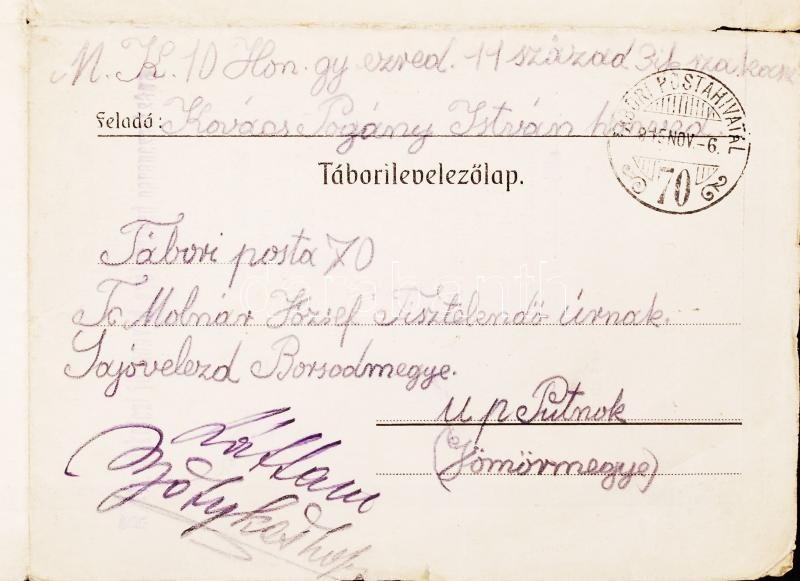 M. K. 10 Hon. gy ezred. 11 század 3ik szakasz
Feladó: Kovács Pogány István honvéd.
TÁBORI POSTAHIVATAL
915 NOV.-6.
70
Táborilevelezőlap.
Tábori posta 70
darabanth
T. Molnár József Tisztelendő úrnak.
Sajóvelezd Borsodmegye.
u p Putnok
(Gömörmegye)
Láttam